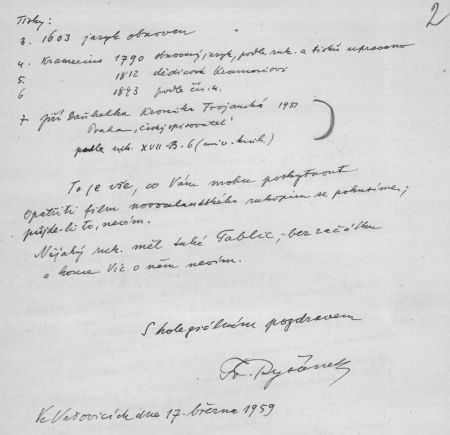 Tisky:
2
3. 1603 jazyk obnoven
4. Kramerius 1790 obnovený jazyk, podle ruk. a tisků upraveno
5. 1812 dědicové Krameriovi
6 1843 podle čís. 4.
7. Jiří Daňhelka Kronika Trojanská 1951
Praha, "Český spisovatel"
podle ruk. XVII-B-6 (univ. knih.)
To je vše, co Vám mohu poskytnout
Opatřiti film rukopisu se pokusíme;
půjde-li to, nevím.
Nějaký ruk. měl také Tablic, bez začátku
a konce. Víc o něm nevím.
S kolegiálním pozdravem
Fr. Ryšánek
Ve Vašovicích dne 17. března 1959